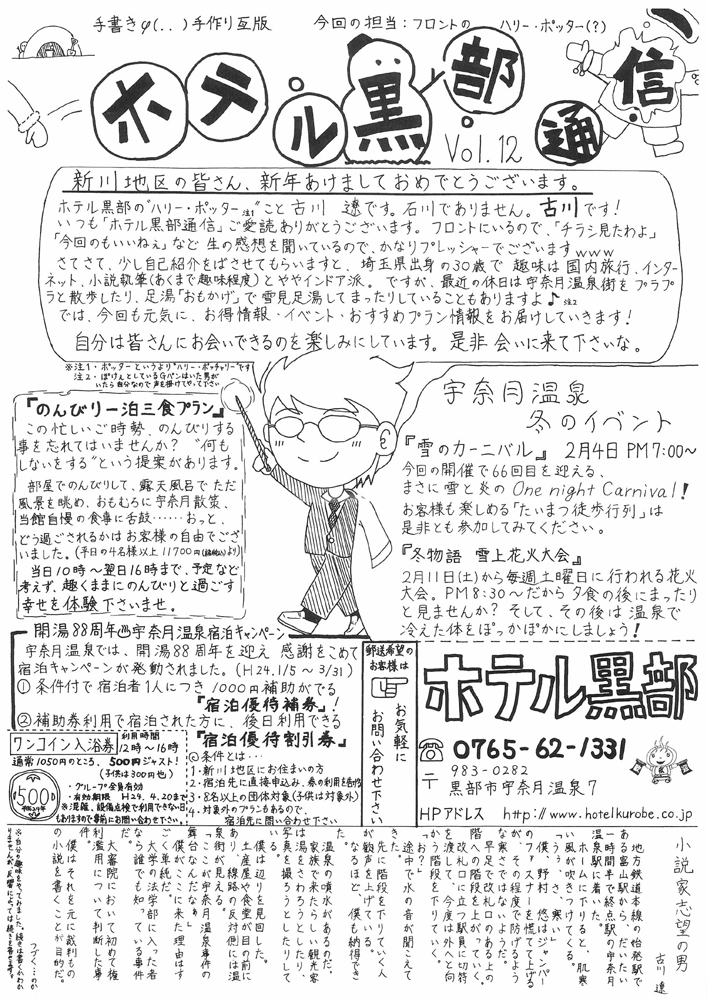 手書きφ(..)手作り瓦版
今回の担当:フロントの ハリー・ポッター(?)
ホテル黒部通信
Vol.12
新川地区の皆さん、新年あけましておめでとうございます。
ホテル黒部の"ハリー・ポッター"注1こと古川 遼です。石川でありません。古川です!
いつも「ホテル黒部通信」ご愛読ありがとうございます。フロントにいるので、「チラシ見たわよ」
「今回のもいいねぇ」など生の感想を聞いているので、かなりプレッシャーでございますwww
さてさて、少し自己紹介をばさせてもらいますと、埼玉県出身の30歳で趣味は国内旅行、インター
ネット、小説執筆(あくまで趣味程度)とややインドア派。ですが、最近の休日は宇奈月温泉街をプラプ
ラと散歩したり、足湯「おもかげ」で雪見足湯してまったりしていることもありますよ♪注2
では、今回も元気に、お得情報・イベント・おすすめプラン情報をお届けしていきます!
自分は皆さんにお会いできるのを楽しみにしています。是非会いに来て下さいな。
※注1・ポッターというより"ハリー・ポッチャリー"です
注2・ぽけぇとしているGパンはいた男が
いたら自分なので声を掛けてやって下さい
『のんびり一泊三食プラン』
この忙しいご時勢、のんびりする
事を忘れてはいませんか?"何も
しないをする"という提案があります。
部屋でのんびりして、露天風呂でただ
風景を眺め、おもむろに宇奈月散策、
当館自慢の食事に舌鼓……おっと、
どう過ごされるかはお客様の自由でござ
いました。(平日の4名様以上11700円(税込)より)
当日10時~翌日16時まで、予定など
考えず、趣くままにのんびりと過ごす
幸せを体験下さいませ。
宇奈月温泉
冬のイベント
『雪のカーニバル』 2月4日 PM7:00~
今回の開催で66回目を迎える、
まさに雪と炎のOne night Carnival!
お客様も楽しめる「たいまつ徒歩行列」は
是非とも参加してみてください。
『冬物語 雪上花火大会』
2月11日(土)から毎週土曜日に行われる花火
大会。PM8:30~だから夕食の後にまったり
と見ませんか?そして、その後は温泉で
冷えた体をぽっかぽかにしましょう!
開湯88周年♨宇奈月温泉宿泊キャンペーン
宇奈月温泉では、開湯88周年を迎え感謝をこめて
宿泊キャンペーンが発動されました。(H24.1/5~3/31)
①条件付で宿泊者1人につき1000円補助がでる
『宿泊優待補券』!
②補助券利用で宿泊された方に、後日利用できる
『宿泊優待割引券』
◎条件とは…
1・新川地区にお住まいの方
2・宿泊先に直接申込み、券の利用を告げる
3・8名以上の団体対象(子供は対象外)
4・対象外のプランもあるので、
宿泊先に問い合わせ下さい
ワンコイン入浴券
利用時間
12時~16時
通常1050円のところ、500円ジャスト!
(子供は300円也)
500
平成24年
・グループ全員有効
・有効期限 H24.4.20まで
※混雑、設備点検で利用できない日
もありますので事前にお問い合わせ下さい。
郵送希望の
お客様は
お気軽に
お問い合わせ下さい
ホテル黒部
☎ 0765-62-1331
〒 983-0282
黒部市宇奈月温泉7
HPアドレス http://www.hotelkurobe.co.jp/
小説家志望の男
古川 遼
地方鉄道本線の始発駅で
ある富山駅から、だいたい
一時間半で終点駅の宇奈月
温泉駅に着いた。
ホームに下りると、肌寒
い風が吹きつけてくる。
「うぅ、さ、寒い」
僕、野村 悠はジャンパー
のファスナーを慌てて上げる
が、その程度で防げるよう
な寒さではないようだ。
早足で改札口のある上の
階への階段を上っていく。
改札口に立つ駅員に切符
を渡して、今度は外へと向
かう階段を下りていく。
「お?」
途中で水の音が聞こえて
きた。
先に階段を下りていく人
が歓声を上げている。
なるほど、僕も納得でき
た。
温泉の噴水があるのだ。
家族で来たらしい観光客
は湯をさわろうとしたり、
写真を撮ろうとしたりして
いる。
僕は辺りを見回した。
土産屋や食堂が目の前に
あり、線路の反対側には温
泉街が見える。
「ここが宇奈月温泉事件の
舞台なんだなぁ」
僕がここに来た理由はす
ごく単純だ。
大学の法学部に入った者
なら誰でも知っている事件
だ。
大審院において初めて権
利濫用について判断した事
件。
僕はそれを元に裁判もの
の小説を書くことが目的だ。
つづく…のか